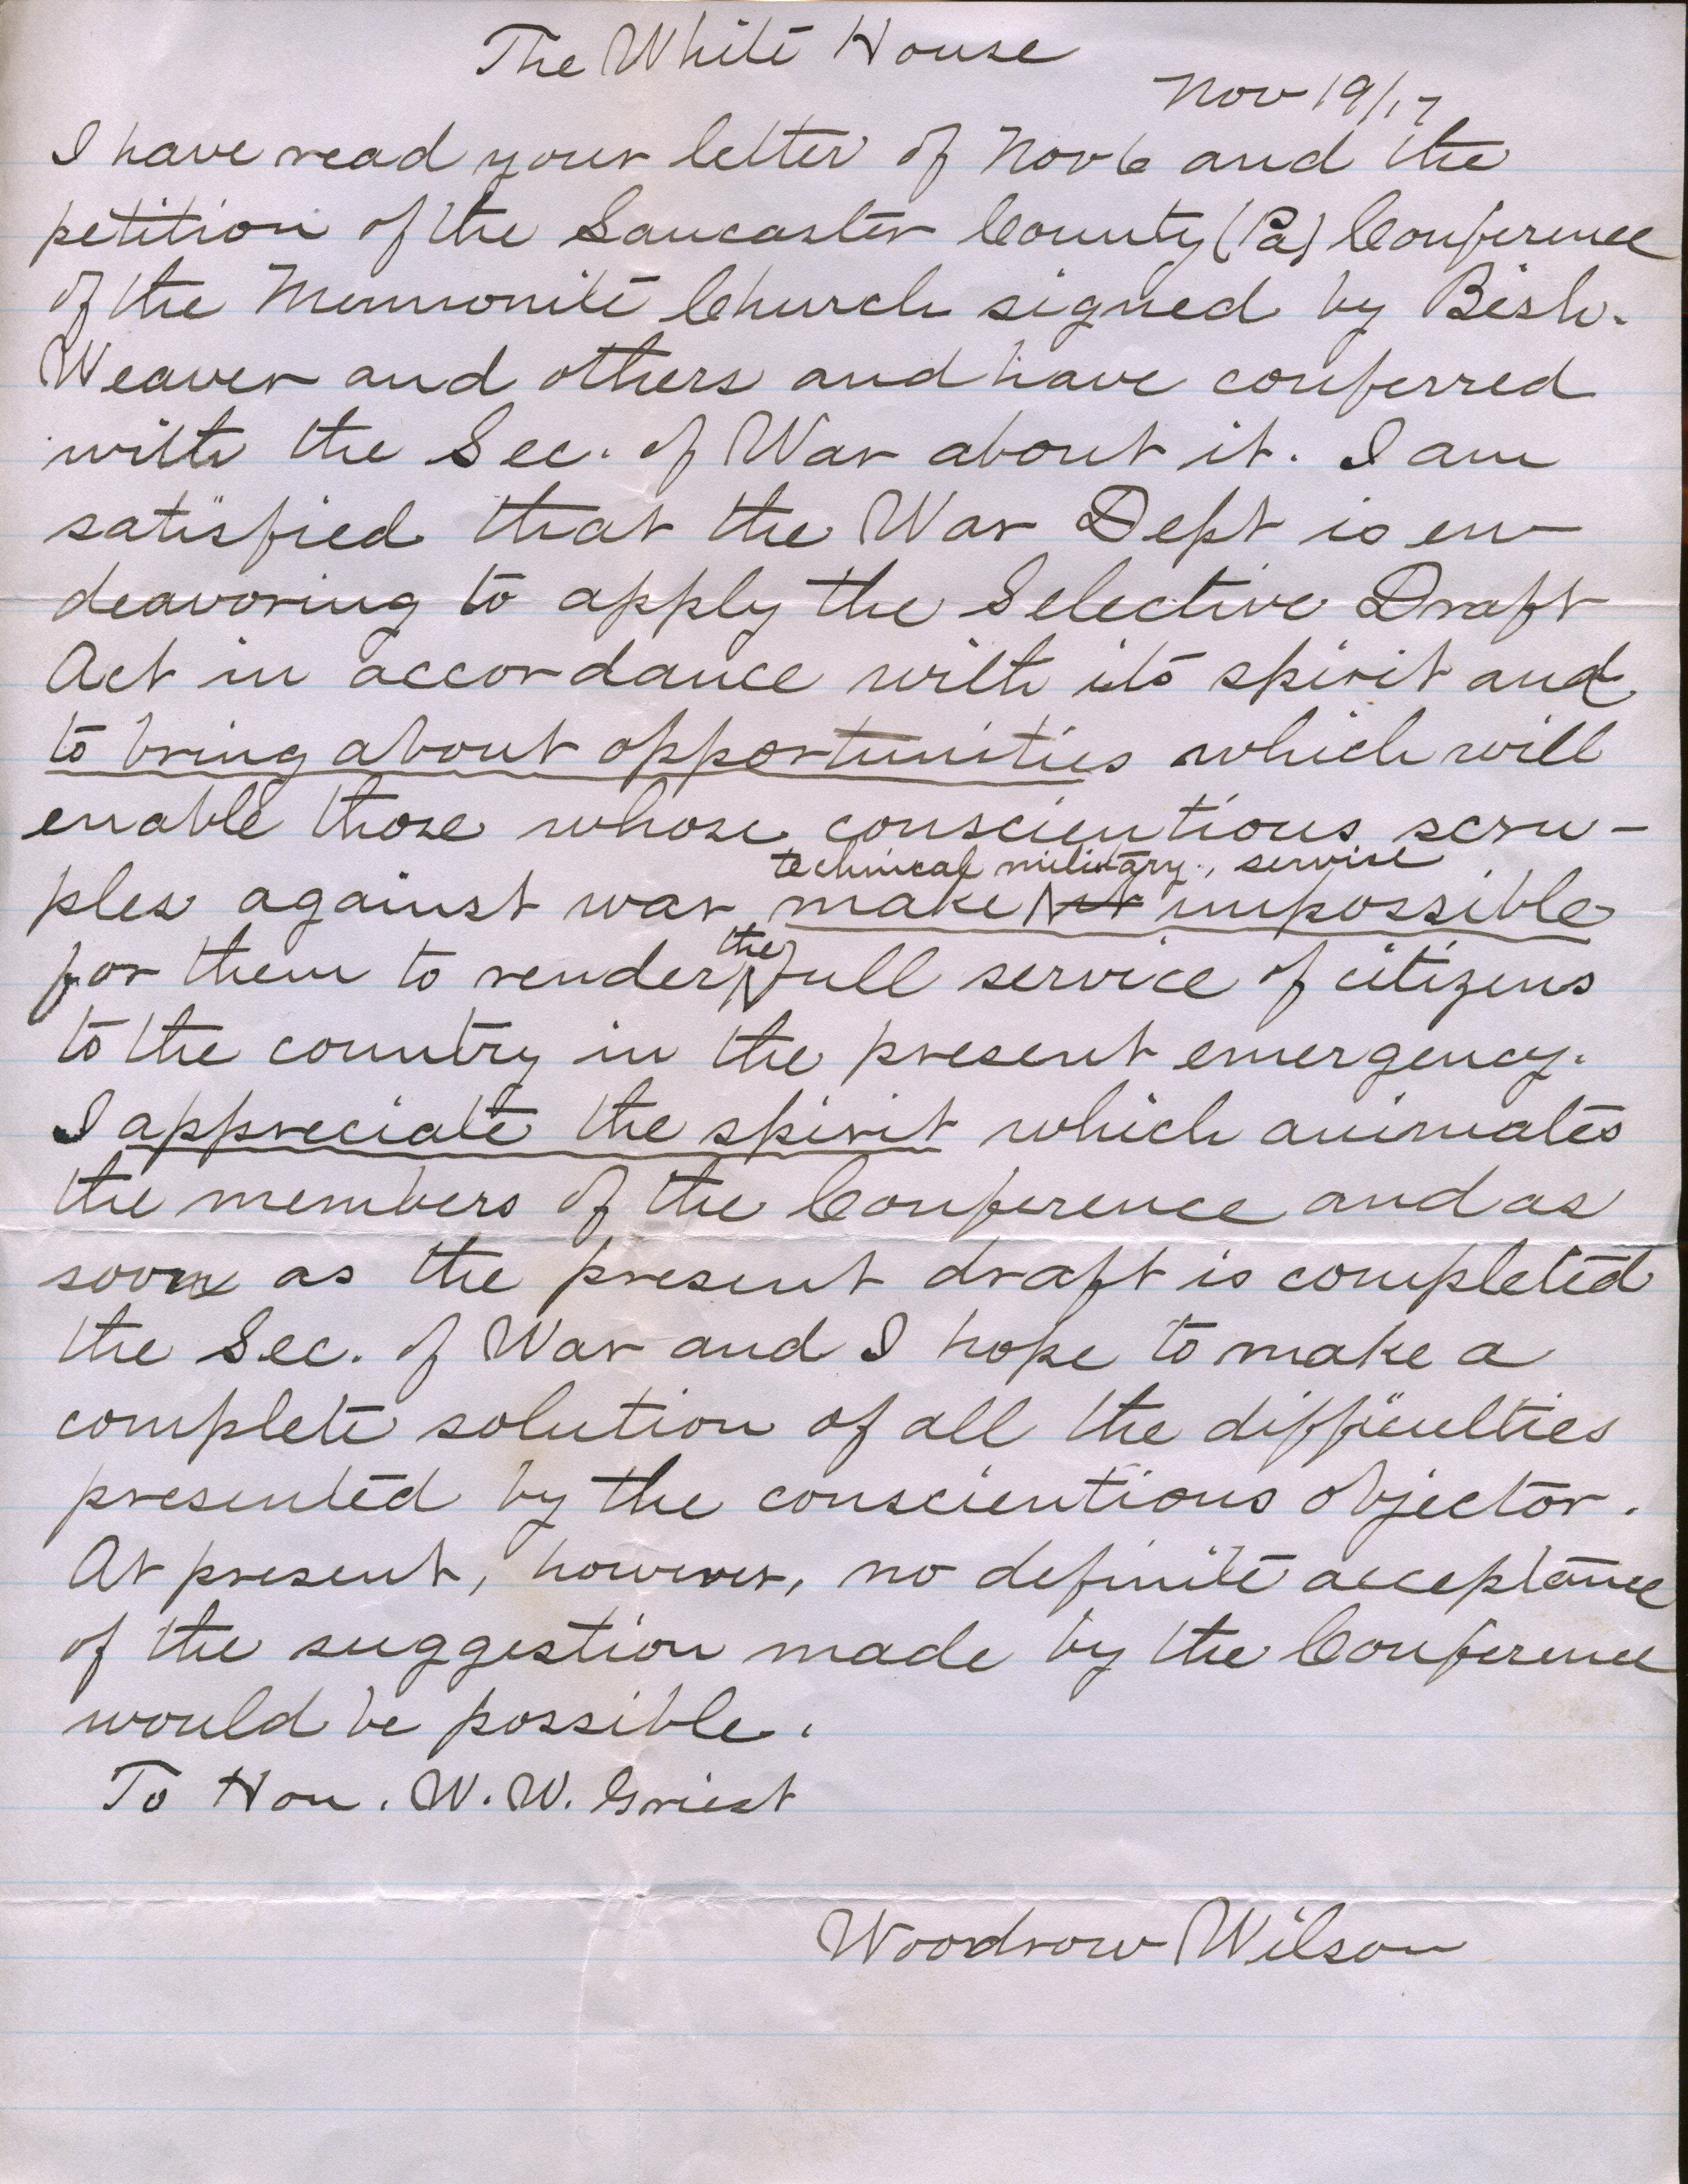 The White House
Nov 19/17
I have read your letter of Nov 6 and the
petition of the Lancaster County (Pa) Conference
of the Mennonite Church signed by Bish.
Weaver and others and have conferred
with the Sec. of War about it. I am
satisfied that the War Dept is en-
deavoring to apply the Selective Draft
Act in accordance with its spirit and
to bring about opportunities which will
enable those whose conscientious scru-
technical military, service
ples against war make it impossible
the
for them to render full service of citizens
to the country in the present emergency.
I appreciate the spirit which animates
the members of the Conference and as
soon as the present draft is completed
the Sec. of War and I hope to make a
complete solution of all the difficulties
presented by the conscientious objector.
At present, however, no definite acceptance
of the suggestion made by the Conference
would be possible.
To Hon. W. W. Griest
Woodrow Wilson